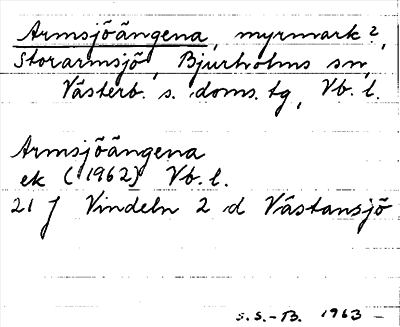 Armsjöängena, myrmark?,
Storarmsjö, Bjurholms sn,
Västerb. s. doms. tg, Vb. l.
Armsjöängena
ek (1962) Vb. l.
21 J Vindeln 2 d Västansjö
S.S.-B. 1963